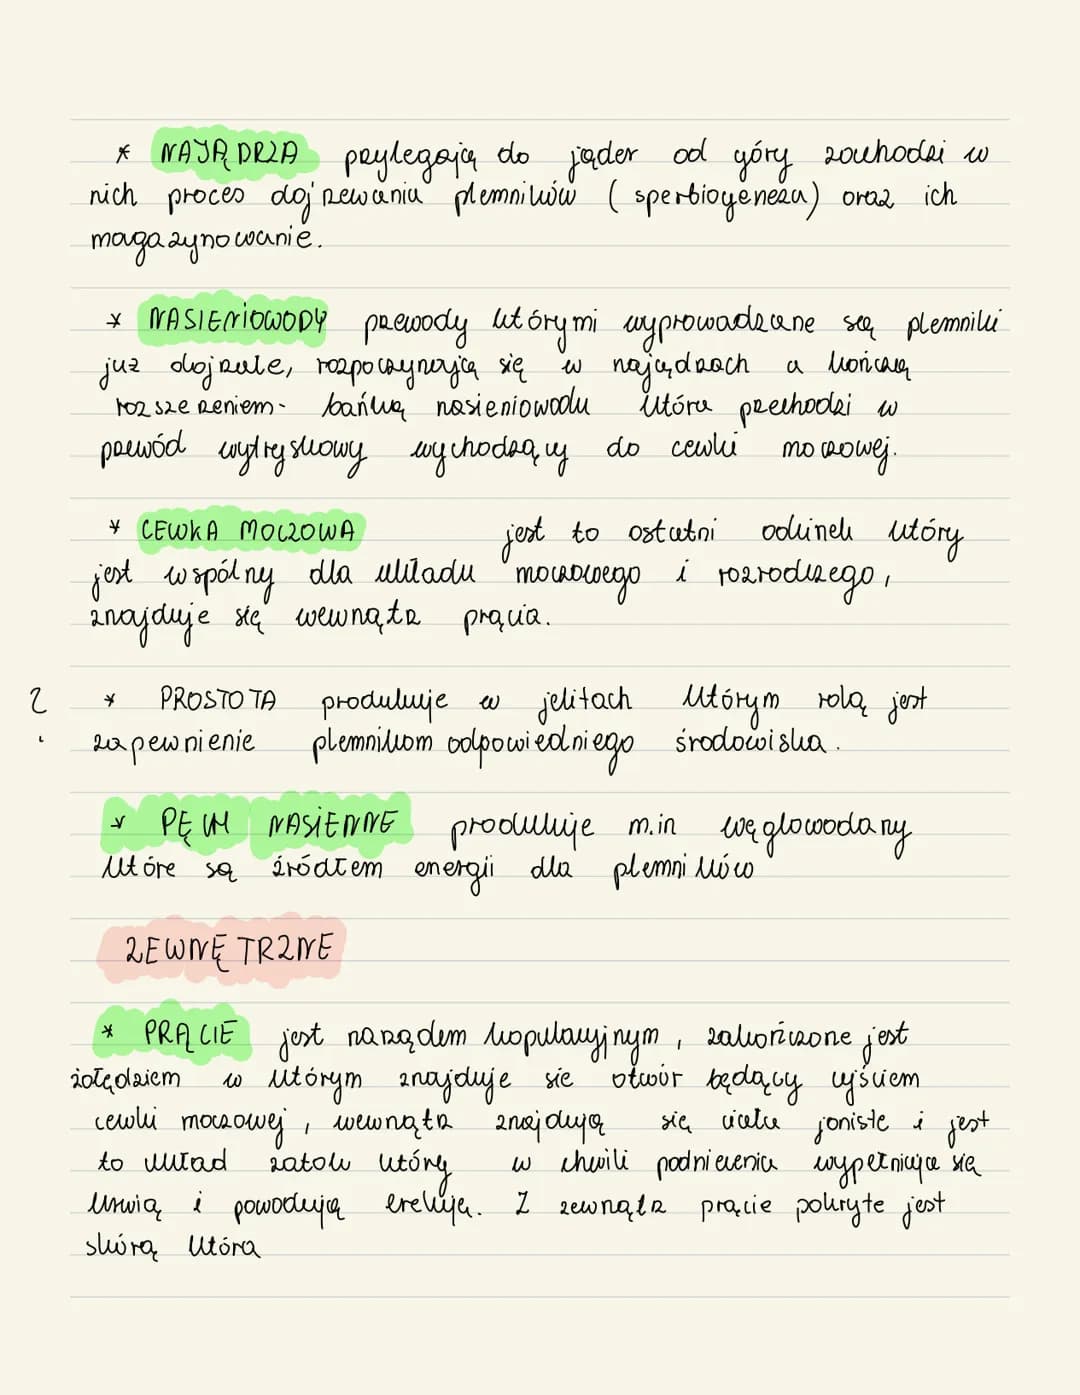 * NAJĄDRZA przylegają do jąder od góry zachodzi w
nich proces dojrzewania plemników (sperbiogeneza) oraz ich
magazynowanie.
* NASIENIOWODY przewody którymi wyprowadzane są plemniki
już dojrzałe, rozpoczynają się w najądrzach a kończą
rozszerzeniem - bańką nasieniowodu która przechodzi w
przewód wytryskowy wychodzący do cewki moczowej.
* CEWKA MOCZOWA jest to ostatni odcinek który
jest wspólny dla układu moczowego i rozrodczego,
znajduje się wewnątrz prącia.
? * PROSTOTA produkuje w jelitach którym rolą jest
zapewnienie plemnikom odpowiedniego środowiska.
* PĘCH NASIENNE produkuje m.in węglowodany
które są źródłem energii dla plemników
ZEWNĘTRZNE
* PRĄCIE jest narządem kopulacyjnym, zakończone jest
żołędziem w którym znajduje sie otwór będący ujściem
cewki moczowej, wewnątrz znajdują się ciałe joniste i jest
to układ zatok który w chwili podniecenia wypełniające się
krwią i powodują erekcję. Z zewnątrz prącie pokryte jest
skórą która